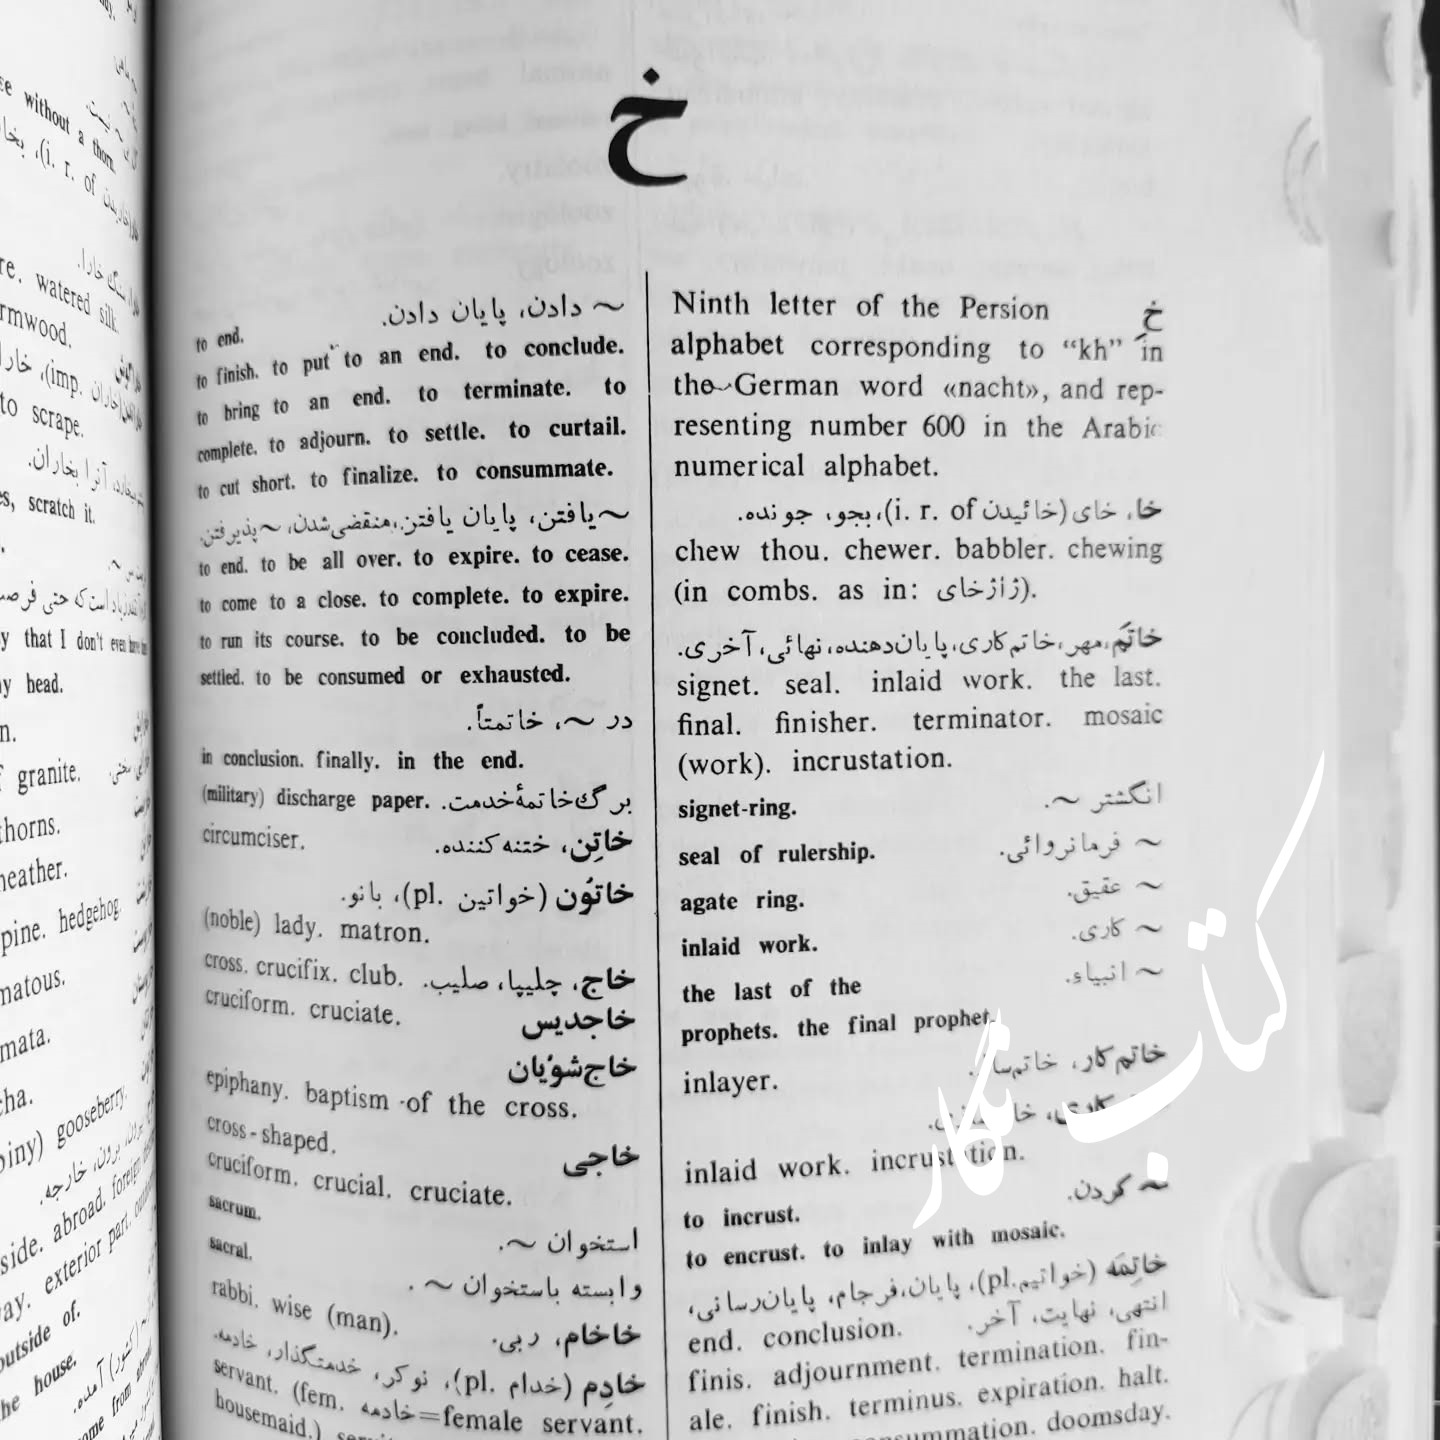 خ
Ninth letter of the Persion خ
alphabet corresponding to “kh” in
the German word «nacht», and rep-
resenting number 600 in the Arabic
numerical alphabet.
خا، خای (i. r. of خائیدن)، بجو، جونده.
chew thou. chewer. babbler. chewing
(in combs. as in: ژاژخای).
خاتَم، مهر، خاتم‌کاری، پایان‌دهنده، نهائی، آخری.
signet. seal. inlaid work. the last.
final. finisher. terminator. mosaic
(work). incrustation.
signet-ring. انگشتر ~.
seal of rulership. ~ فرمانروائی.
agate ring. ~ عقیق.
inlaid work. ~ کاری.
the last of the ~ انبیاء.
prophets. the final prophet.
خاتم‌کار، خاتم‌ساز.
inlayer.
کاری،
inlaid work. incrustation.
to incrust. ~ کردن.
to encrust. to inlay with mosaic.
خاتِمَه (pl. خواتیم)، پایان، فرجام، پایان‌رسانی،
انتهی، نهایت، آخر.
end. conclusion.
finis. adjournment. termination. fin-
ale. finish. terminus. expiration. halt.
consummation. doomsday.
~ دادن، پایان دادن.
to end.
to finish. to put to an end. to conclude.
to bring to an end. to terminate. to
complete. to adjourn. to settle. to curtail.
to cut short. to finalize. to consummate.
~ یافتن، پایان یافتن، منقضی شدن، ~ پذیرفتن.
to end. to be all over. to expire. to cease.
to come to a close. to complete. to expire.
to run its course. to be concluded. to be
settled. to be consumed or exhausted.
در ~، خاتمتاً.
in conclusion. finally. in the end.
(military) discharge paper. برگ خاتمهٔ خدمت.
circumciser. خاتِن، ختنه کننده.
خاتوُن (pl. خواتین)، بانو.
(noble) lady. matron.
cross. crucifix. club. خاج، چلیپا، صلیب.
cruciform. cruciate. خاجدیس
خاج‌شوُیان
epiphany. baptism of the cross.
cross-shaped. خاجی
cruciform. crucial. cruciate.
sacrum. استخوان ~.
sacral. وابسته باستخوان ~.
rabbi. wise (man). خاخام، ربی.
خادِم (pl. خدام)، نوکر، خدمتگذار، خادمه.
servant. (fem. خادمه=female servant.
housemaid.)
without a thorn.
(i. r. of
خارا، سنگ خارا.
watered silk.
rmwood.
(imp. خاران)
to scrape.
آنرا بخاران.
scratch it.
that I don't even
my head.
granite.
thorns.
heather.
hedgehog.
gooseberry.
خارجه.
abroad. foreign
exterior part.
outside of.
the house.
come from abroad
کتاب نگار